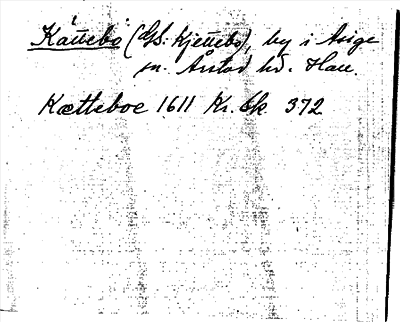 Kättebo (Gs: Kjettebo), by i Asige
sn. Årstad hd. Hall.
Kætteboe 1611 Kr. Sk 372